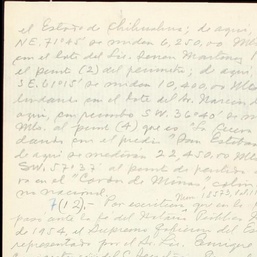 el Estado de Chihuahua; de aquí,
NE. 71°45' se miden 6,250.00 Mts
con el lote del Lic. Ramon Martinez
el punto (2) del perimetro; de aquí
SE. 61°15' se miden 10,400.00 Mts
lindando con el lote del Sr. Narciso
aquí, con rumbo SW. 36°40' se m
Mts. al punto (4) que es "La Cueva
dando con el predio "San Esteban
de aquí se mediran 22,450.00 Mts
SW. 57°37' al punto de partida
en el "Cañon de Minas", colin
no nacional.
7(12).- Por escritura Num.
pasó ante la fe del Notario Público
de 1954, el Supremo Gobierno del Est
representado por el Sr. Lic. Enrique